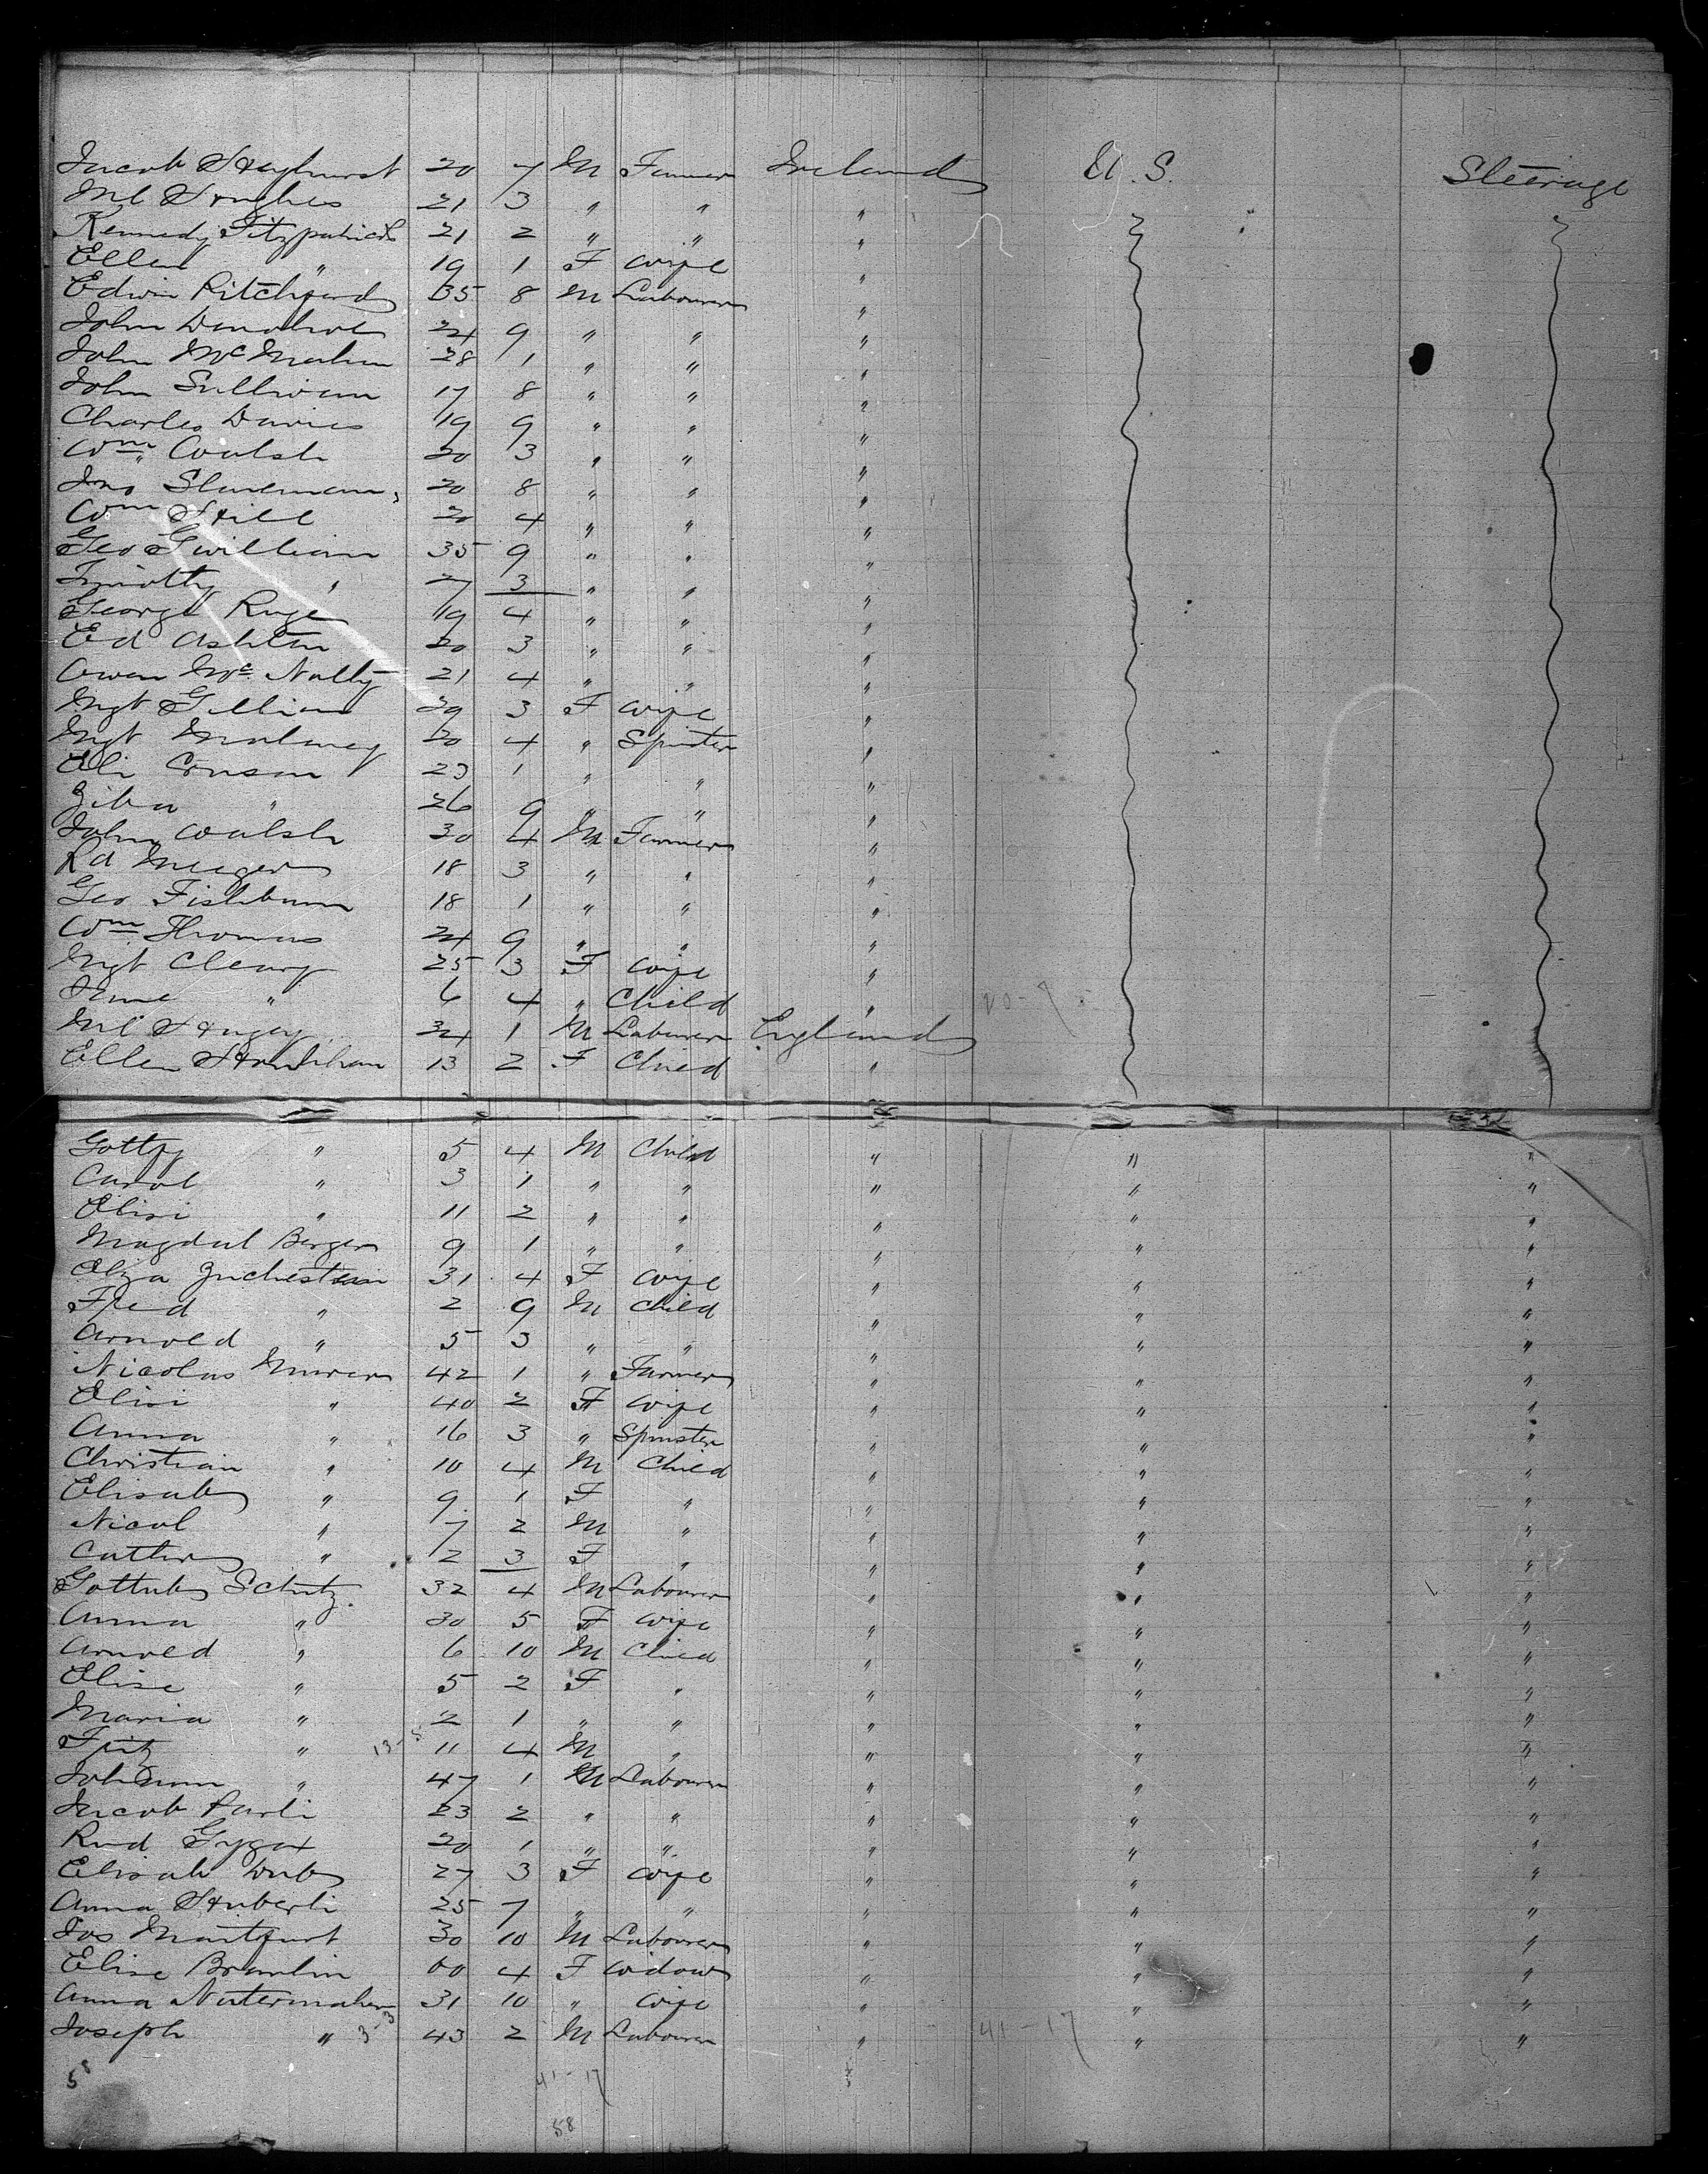 Jacob Hayhurst 20 7 M Farmer Ireland U.S. Steerage
Ml Hughes 21 3 " " "
Kennedy Fitzpatrick 21 2 " " "
Ellen " 19 1 F Wife "
Edwin Pitchford 35 8 M Labourer "
John Donohoe 24 9 " " "
John McMahon 28 1 " " "
John Sullivan 17 8 " " "
Charles Davies 19 9 " " "
Wm Walsh 20 3 " " "
Jno 20 8 " " "
Wm Hill 20 4 " " "
Geo Gwilliam 35 9 " " "
Timothy " 27 3 " " "
George 19 4 " " "
Ed Ashton 20 3 " " "
Owen McNally 21 4 " " "
Mgt 29 3 F Wife "
Mgt 20 4 " Spinster "
Eli 23 1 " " "
" 26 9 " " "
John Walsh 30 4 M Farmer "
Rd Meager 18 3 " " "
Geo Fishburn 18 1 " " "
Wm Thomas 24 9 " " "
Mgt Cleary 25 3 F Wife "
" 6 4 " Child "
Ml 34 1 M Labourer England
Ellen Honlihan 13 2 F Child "
" 5 4 M Child " " "
Carol " 3 1 " " " " "
Elisi " 11 2 " " " " "
Magdal Berger 9 1 " " " " "
31 4 F Wife " " "
Fred " 2 9 M Child " " "
Arnold " 5 3 " " " " "
Nicolas 42 1 " Farmer " " "
Elisi " 40 2 F Wife " " "
Anna " 16 3 " Spinster " " "
Christian " 10 4 M Child " " "
Elisab " 9 1 F " " " "
Nicol " 7 2 M " " " "
" 2 3 F " " " "
Gottlieb Schutz. 32 4 M Labourer " " "
Anna " 30 5 F Wife " " "
Arnold " 6 10 M Child " " "
Elise " 5 2 F " " " "
Maria " 2 1 " " " " "
Fritz " 11 4 M " " " "
Johann " 47 1 M Labourer " " "
Jacob 23 2 " " " " "
Rud Gygax 20 1 " " " " "
Elisab Dub 27 3 F Wife " " "
Anna Huberli 25 7 " " " " "
Jos 30 10 M Labourer " " "
Elise 60 4 F Widow " " "
Anna 31 10 " Wife " " "
Joseph " 3-3 43 2 M Labourer " 41-17 " "
58 41-17
58